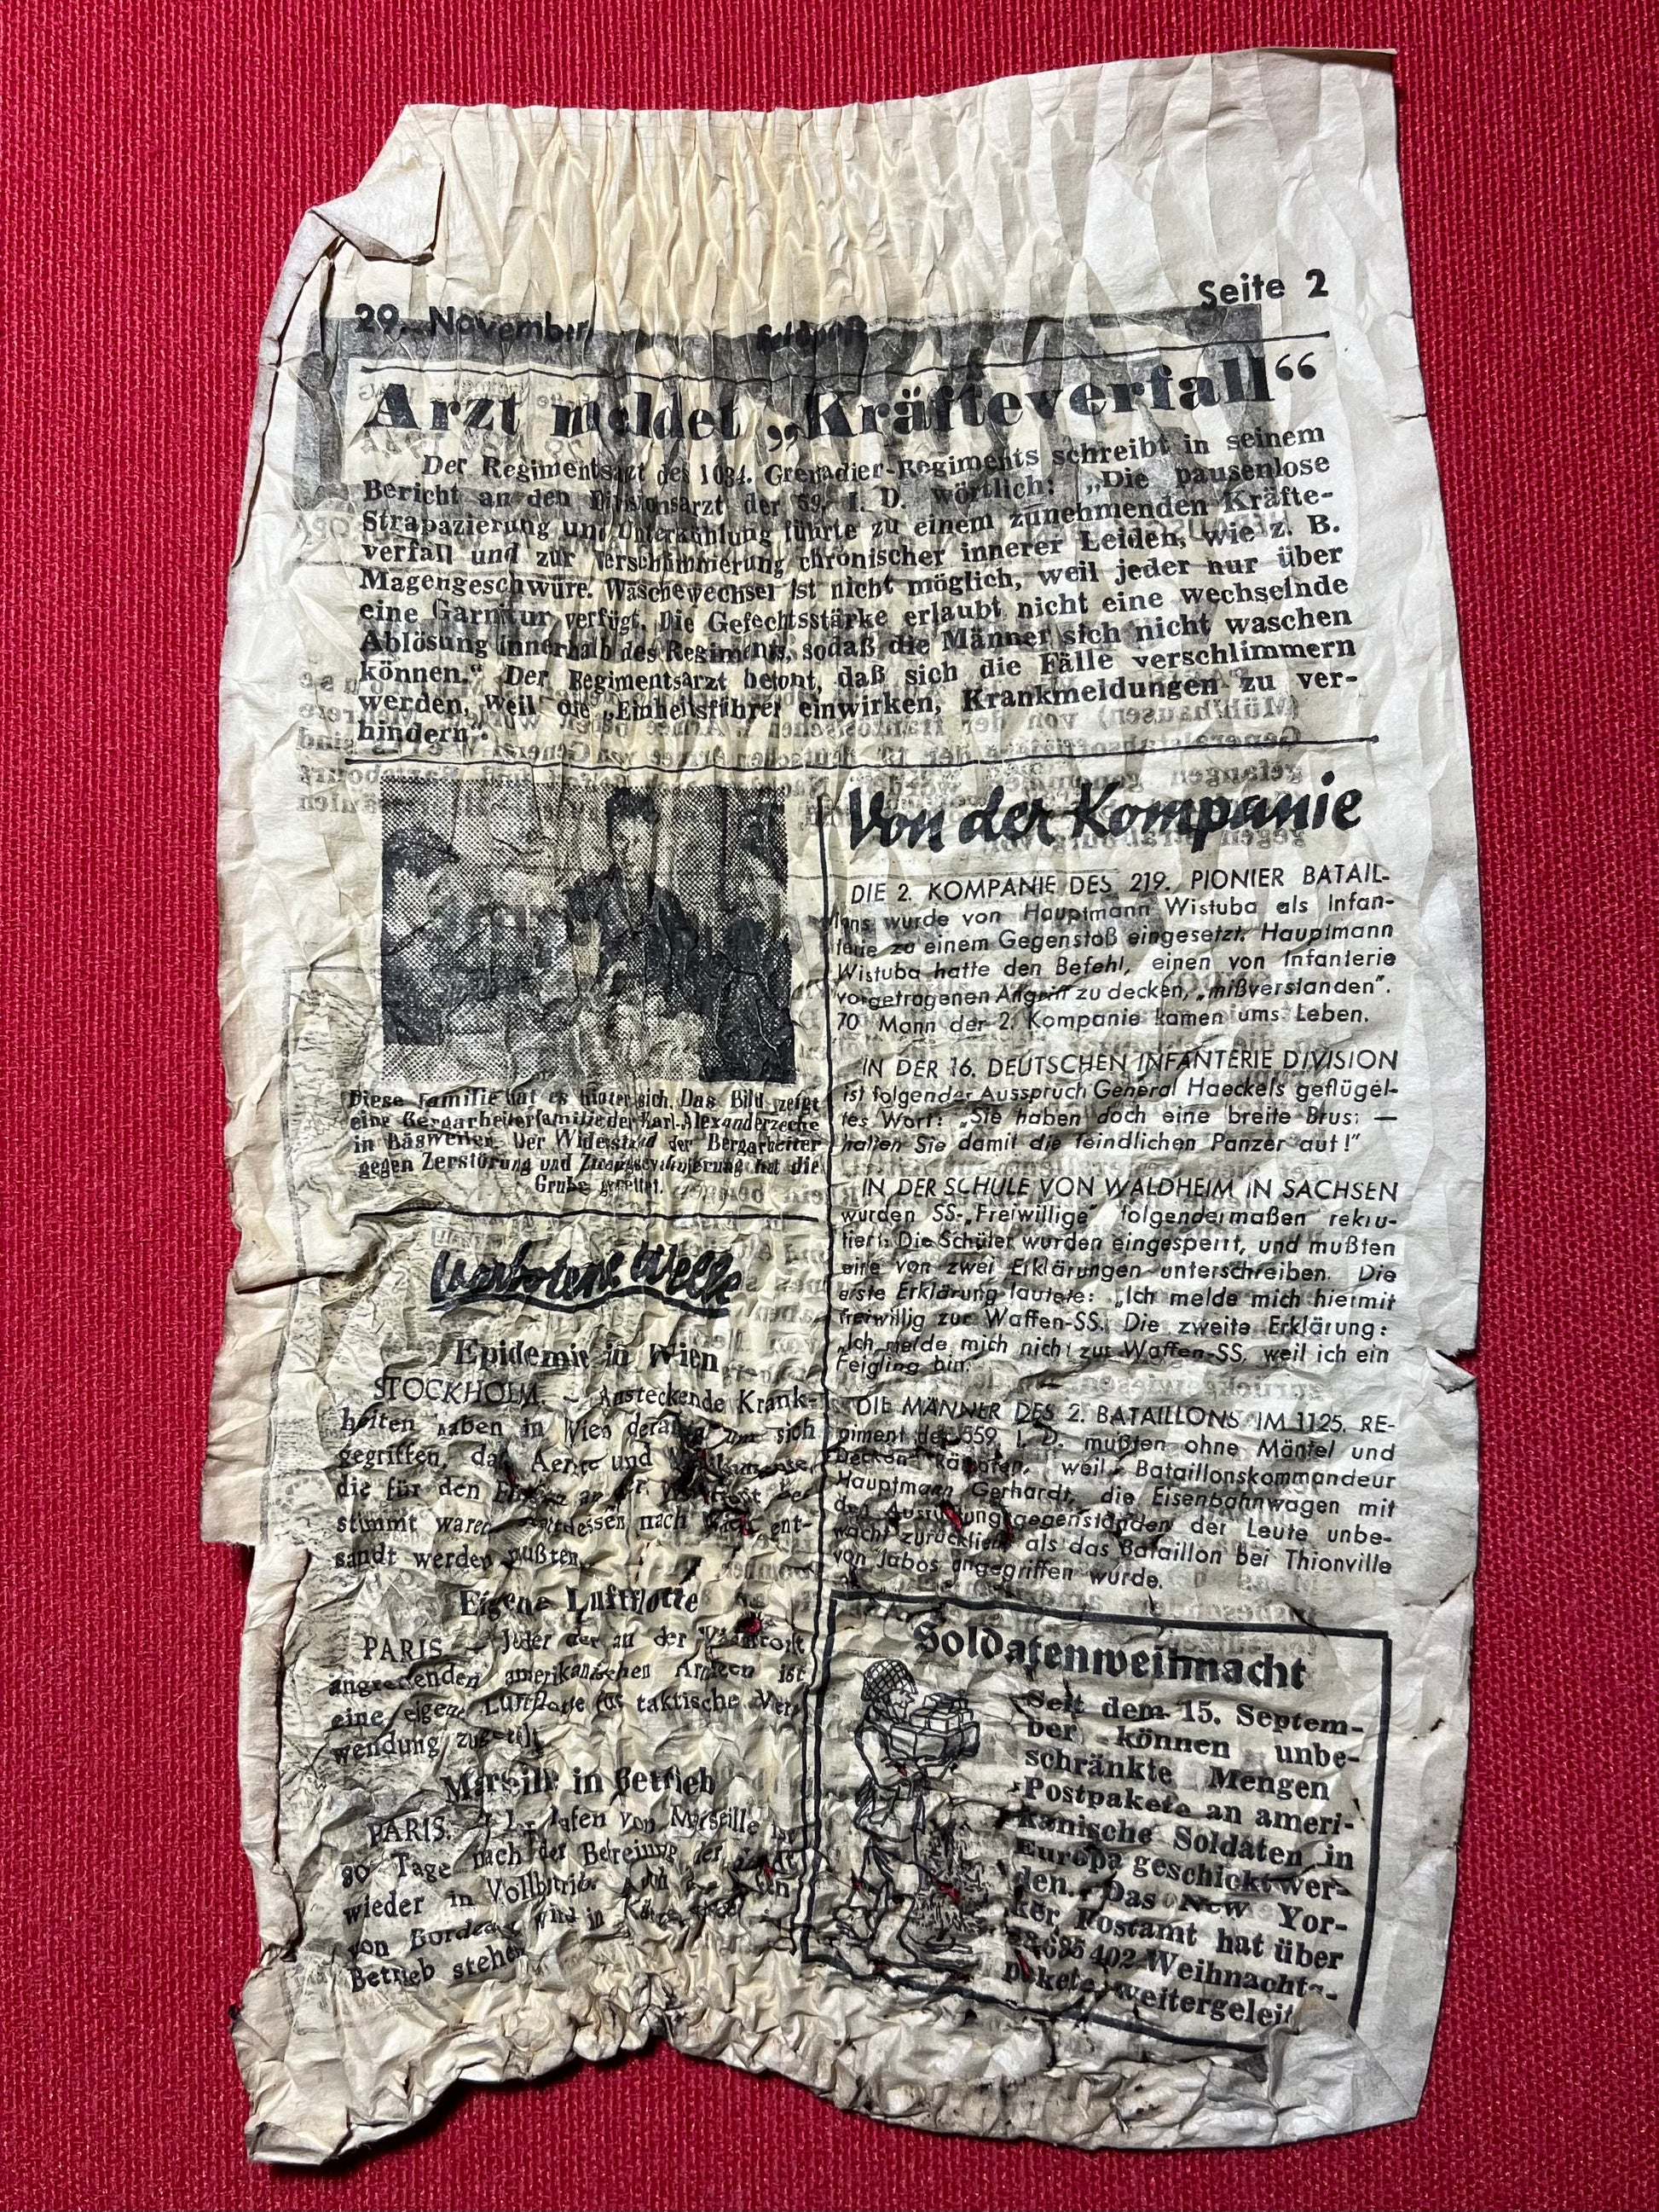 29. November Feldpost Seite 2
Arzt meldet „Kräfteverfall“
Der Regimentsarzt des 1034. Grenadier-Regiments schreibt in seinem
Bericht an den Divisionsarzt der 59. I. D. wörtlich: „Die pausenlose
Strapazierung und Unterkühlung führte zu einem zunehmenden Kräfte-
verfall und zur Verschlimmerung chronischer innerer Leiden, wie z. B.
Magengeschwüre. Wäschewechsel ist nicht möglich, weil jeder nur über
eine Garnitur verfügt. Die Gefechtsstärke erlaubt nicht eine wechselnde
Ablösung innerhalb des Regiments, sodaß die Männer sich nicht waschen
können.“ Der Regimentsarzt betont, daß sich die Fälle verschlimmern
werden, weil die „Einheitsführer einwirken, Krankmeldungen zu ver-
hindern“.
Diese Familie hat es hinter sich. Das Bild zeigt
eine Bergarbeiterfamilie der Karl-Alexanderzeche
in Bäsweiler. Der Widerstand der Bergarbeiter
gegen Zerstörung und Zwangsevakuierung hat die
Grube gerettet.
Verbotene Welle
Epidemie in Wien
STOCKHOLM. — Ansteckende Krank-
heiten haben in Wien derart um sich
gegriffen, daß Aerzte und
die für den an der Westfront be-
stimmt waren, stattdessen nach Wien ent-
sandt werden mußten.
Eigene Luftflotte
PARIS. — Jeder der an der Westfront
angreifenden amerikanischen Armeen ist
eine eigene Luftflotte für taktische Ver-
wendung zugeteilt.
Marseille in Betrieb
PARIS. — Hafen von Marseille ist
80 Tage nach der Befreiung der Stadt
wieder in Vollbetrieb. Auch der Hafen
von Bordeaux wird in Kürze
Betrieb stehen
Von der Kompanie
DIE 2. KOMPANIE DES 219. PIONIER BATAIL-
lons wurde von Hauptmann Wistuba als Infan-
terie zu einem Gegenstoß eingesetzt. Hauptmann
Wistuba hatte den Befehl, einen von Infanterie
vorgetragenen Angriff zu decken, „mißverstanden“.
70 Mann der 2. Kompanie kamen ums Leben.
IN DER 16. DEUTSCHEN INFANTERIE DIVISION
ist folgender Ausspruch General Haeckels geflügel-
tes Wort: „Sie haben doch eine breite Brust —
halten Sie damit die feindlichen Panzer auf!“
IN DER SCHULE VON WALDHEIM IN SACHSEN
wurden SS-„Freiwillige“ folgendermaßen rekru-
tiert: Die Schüler wurden eingesperrt, und mußten
eine von zwei Erklärungen unterschreiben. Die
erste Erklärung lautete: „Ich melde mich hiermit
freiwillig zur Waffen-SS. Die zweite Erklärung:
„Ich melde mich nicht zur Waffen-SS, weil ich ein
Feigling bin.
DIE MÄNNER DES 2. BATAILLONS IM 1125. RE-
giment der 559. I. D. mußten ohne Mäntel und
Decken kämpfen, weil Bataillonskommandeur
Hauptmann Gerhardt, die Eisenbahnwagen mit
den Ausrüstungsgegenständen der Leute unbe-
wacht zurückließ als das Bataillon bei Thionville
von Jabos angegriffen wurde.
Soldatenweihnacht
Seit dem 15. Septem-
ber können unbe-
schränkte Mengen
Postpakete an ameri-
kanische Soldaten in
Europa geschickt wer-
den. Das New Yor-
ker Postamt hat über
Weihnachts-
pakete weitergeleit